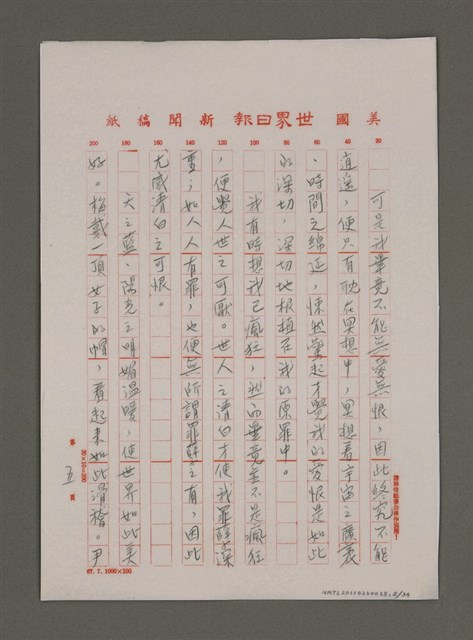 美國世界日報新聞稿紙
20
40
60
80
100
120
140
160
180
200
可是我畢竟不能無愛無恨，因此終究不能
逍遙，便只有耽在冥想中，冥想着宇宙之廣袤
、時間之綿延，悚然驚起才覺我的愛恨是如此
的深切，深切地根植在我的原罪中。
我有時想我已瘋狂，然而畢竟並不是瘋狂
，便覺人世之可厭。世人之清白才使我罪孽深
重；如人人有罪，也便無所謂罪孽之有，因此
尤感清白之可恨。
天之藍、陽光之明媚溫暖，使世界如此美
好。梅戴一頂女子的帽，看起來如此滑稽。尹
第 五 頁
20×10=200
67. 7. 1000×100
NMTL20150260028:5/34